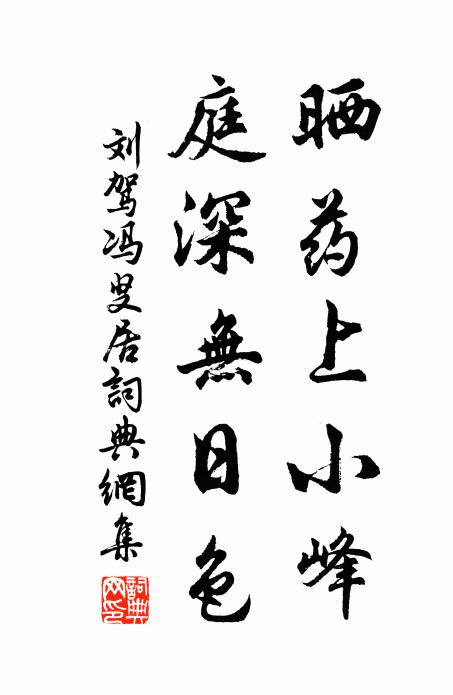 晒药上小峰
庭深無日色
刘驾冯叟居詞典網集
詞典網